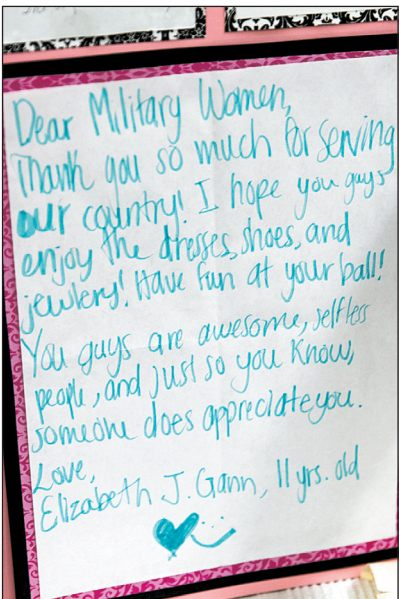 Dear Military Women,
Thank you so much for serving
our country! I hope you guys
enjoy the dresses, shoes, and
jewlery! Have fun at your ball!
You guys are awesome, selfless
people, and just so you know,
someone does appreciate you.
Love,
Elizabeth J. Gann, 11 yrs. old